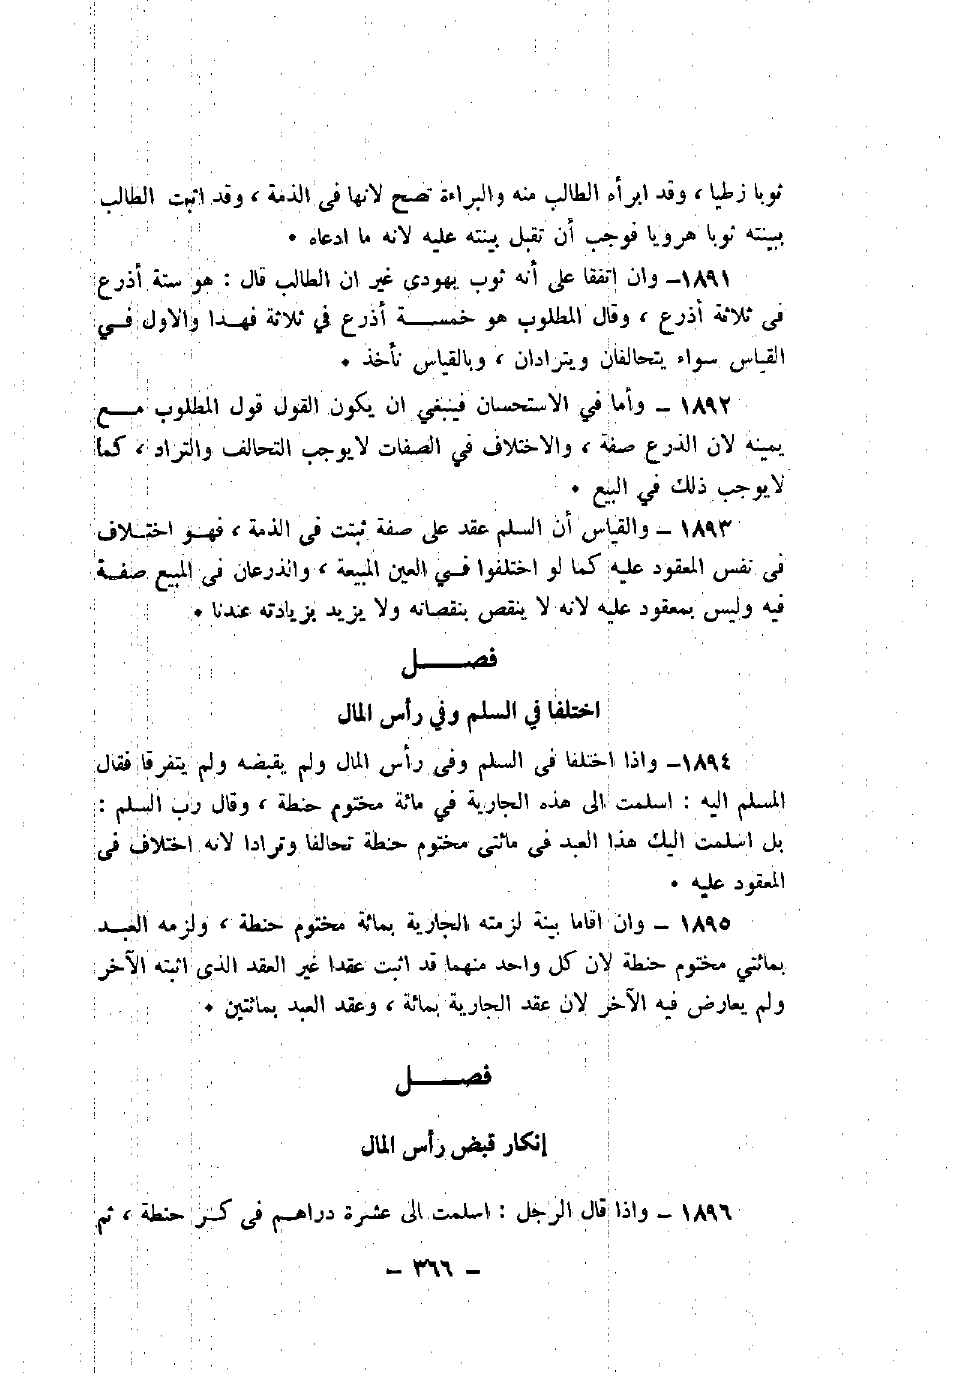 ثوبا زطيا ، وقد ابرأه الطالب منه والبراءة تصح لانها فى الذمة ، وقد اثبت الطالب
ببينته ثوبا هرويا فوجب أن تقبل بينته عليه لانه ما ادعاه •
١٨٩١– وان اتفقا على أنه ثوب يهودى غير ان الطالب قال : هو ستة أذرع
فى ثلاثة أذرع ، وقال المطلوب هو خمسة أذرع في ثلاثة فهذا والاول في
القياس سواء يتحالفان ويترادان ، وبالقياس نأخذ •
١٨٩٢ – وأما في الاستحسان فينبغي ان يكون القول قول المطلوب مع
يمينه لان الذرع صفة ، والاختلاف في الصفات لايوجب التحالف والتراد ، كما
لايوجب ذلك في البيع •
١٨٩٣ – والقياس أن السلم عقد على صفة ثبتت فى الذمة ، فهو اختلاف
فى نفس المعقود عليه كما لو اختلفوا في العين المبيعة ، والذرعان فى المبيع صفة
فيه وليس بمعقود عليه لانه لا ينقص بنقصانه ولا يزيد بزيادته عندنا •
فصل
اختلفا في السلم وفي رأس المال
١٨٩٤– واذا اختلفا فى السلم وفى رأس المال ولم يقبضه ولم يتفرقا فقال
المسلم اليه : اسلمت الى هذه الجارية في مائة مختوم حنطة ، وقال رب السلم :
بل اسلمت اليك هذا العبد فى مائتى مختوم حنطة تحالفا وترادا لانه اختلاف فى
المعقود عليه •
١٨٩٥ – وان اقاما بينة لزمته الجارية بمائة مختوم حنطة ، ولزمه العبد
بمائتي مختوم حنطة لان كل واحد منهما قد اثبت عقدا غير العقد الذى اثبته الآخر
ولم يعارض فيه الآخر لان عقد الجارية بمائة ، وعقد العبد بمائتين •
فصل
إنكار قبض رأس المال
١٨٩٦ – واذا قال الرجل : اسلمت الى عشرة دراهم فى كر حنطة ، ثم
– ٣٦٦ –